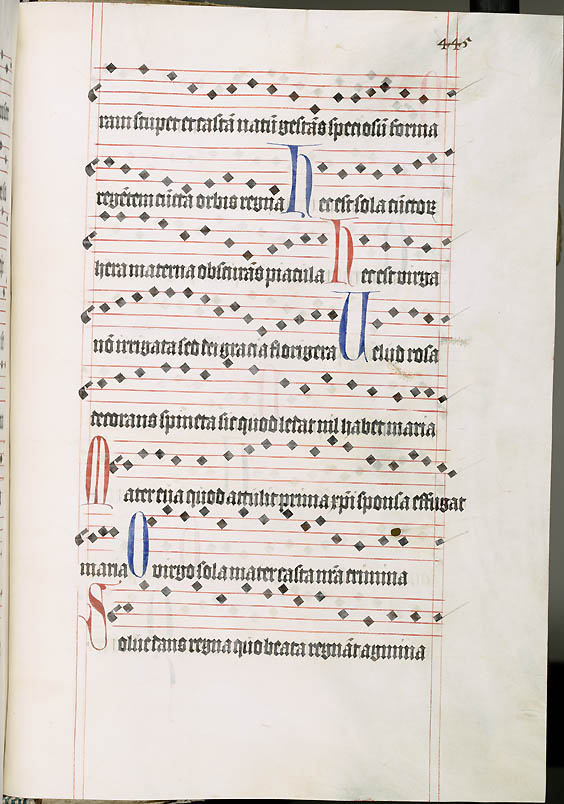 445
ram semper et castā natū gestās speciosū forma
regētem cūcta orbis regna Hec est sola cūctoꝝ
hera materna obscurās piacula Hec est virga
nō irrigata sed dei gracia florigera Uelud rosa
decorans spineta sic quod ledat nil habet maria
Mater eua quod attulit prima xpi sponsa effugat
maria O virgo sola mater casta nr̄a crimina
Solue dans regna quo beata regnāt agmina